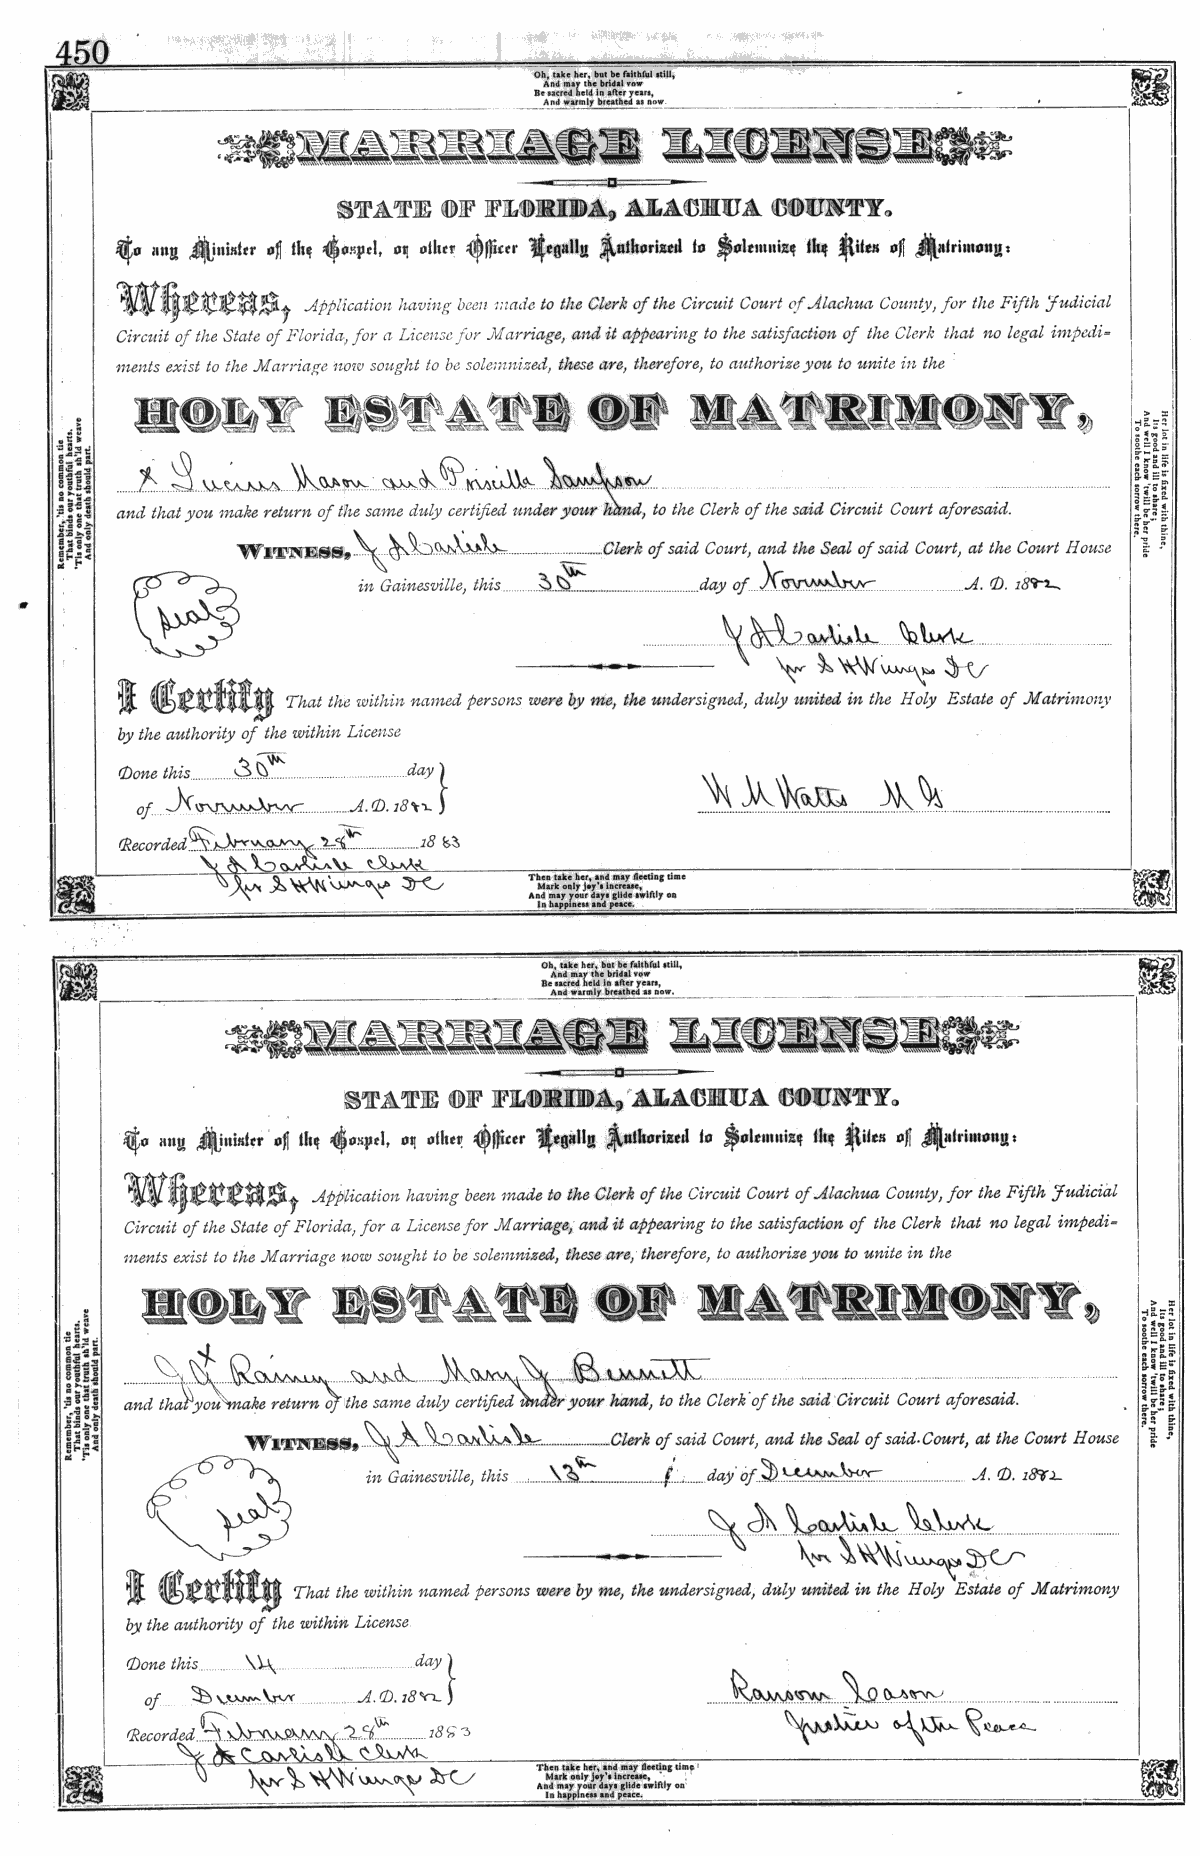 450
Oh, take her, but be faithful still,
And may the bridal vow
Be sacred held in after years,
And warmly breathed as now.
MARRIAGE LICENSE
STATE OF FLORIDA, ALACHUA COUNTY.
To any Minister of the Gospel, or other Officer Legally Authorized to Solemnize the Rites of Matrimony:
Whereas, Application having been made to the Clerk of the Circuit Court of Alachua County, for the Fifth Judicial
Circuit of the State of Florida, for a License for Marriage, and it appearing to the satisfaction of the Clerk that no legal impedi=
ments exist to the Marriage now sought to be solemnized, these are, therefore, to authorize you to unite in the
HOLY ESTATE OF MATRIMONY,
x Lucius Mason and Priscilla Sampson
and that you make return of the same duly certified under your hand, to the Clerk of the said Circuit Court aforesaid.
WITNESS, J A Carlisle Clerk of said Court, and the Seal of said Court, at the Court House
in Gainesville, this 30th day of November A. D. 1882
Seal
J A Carlisle Clerk
per S H Wienges DC
I Certify That the within named persons were by me, the undersigned, duly united in the Holy Estate of Matrimony
by the authority of the within License
Done this 30th day
of November A. D. 1882
W M Watts M G
Recorded February 28th 1883
J A Carlisle Clerk
per S H Wienges DC
Then take her, and may fleeting time
Mark only joy's increase,
And may your days glide swiftly on
In happiness and peace.
Remember, 'tis no common tie
That binds our youthful hearts.
'Tis only one that truth sh'ld weave
And only death should part.
Her lot in life is fixed with thine,
Its good and ill to share;
And well I know 'twill be her pride
To soothe each sorrow there.
Oh, take her, but be faithful still,
And may the bridal vow
Be sacred held in after years,
And warmly breathed as now.
MARRIAGE LICENSE
STATE OF FLORIDA, ALACHUA COUNTY.
To any Minister of the Gospel, or other Officer Legally Authorized to Solemnize the Rites of Matrimony:
Whereas, Application having been made to the Clerk of the Circuit Court of Alachua County, for the Fifth Judicial
Circuit of the State of Florida, for a License for Marriage, and it appearing to the satisfaction of the Clerk that no legal impedi=
ments exist to the Marriage now sought to be solemnized, these are, therefore, to authorize you to unite in the
HOLY ESTATE OF MATRIMONY,
J G x Rainey and Mary J Bennett
and that you make return of the same duly certified under your hand, to the Clerk of the said Circuit Court aforesaid.
WITNESS, J A Carlisle Clerk of said Court, and the Seal of said Court, at the Court House
in Gainesville, this 13th day of December A. D. 1882
Seal
J A Carlisle Clerk
per S H Wienges DC
I Certify That the within named persons were by me, the undersigned, duly united in the Holy Estate of Matrimony
by the authority of the within License
Done this 14 day
of December A. D. 1882
Ransom Cason
Justice of the Peace
Recorded February 28th 1883
J A Carlisle Clerk
per S H Wienges DC
Then take her, and may fleeting time
Mark only joy's increase,
And may your days glide swiftly on
In happiness and peace.
Remember, 'tis no common tie
That binds our youthful hearts.
'Tis only one that truth sh'ld weave
And only death should part.
Her lot in life is fixed with thine,
Its good and ill to share;
And well I know 'twill be her pride
To soothe each sorrow there.